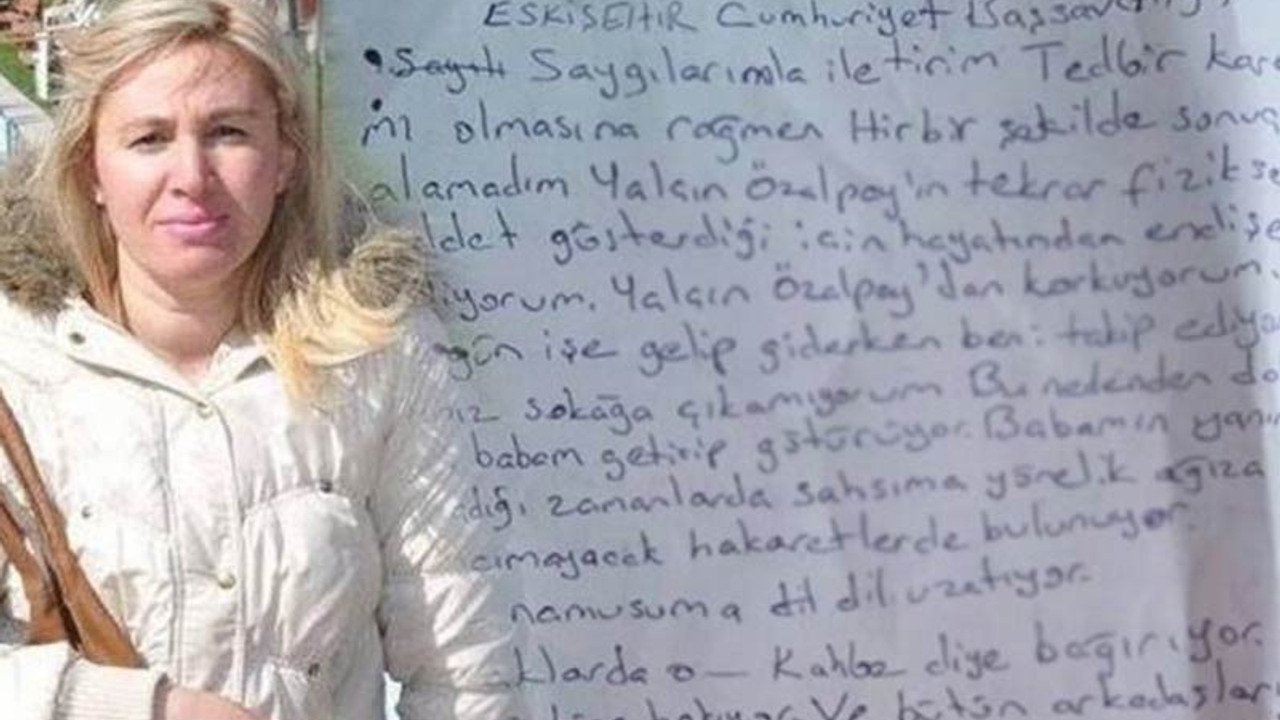 ESKİŞEHİR Cumhuriyet Başsavcılığı,
Sayılı Saygılarımla iletirim Tedbir kara
mı olmasına rağmen Hirbir şekilde sonuç
alamadım Yalçın Özalpay'ın tekrar fizikse
ddet gösterdiği için hayatından endişe
iyorum. Yalçın Özalpay'dan korkuyorum.
gün işe gelip giderken beni takip ediyo
ız sokağa çıkamıyorum Bu nedenden do
babam getirip götürüyor. Babamın yanı
dığı zamanlarda sahsıma yönelik ağıza
cımayacak hakaretlerde bulunuyor.
namusuma dil dil uzatıyor.
klarda o— Kahbe diye bağırıyor.
Ve bütün arkadaşları